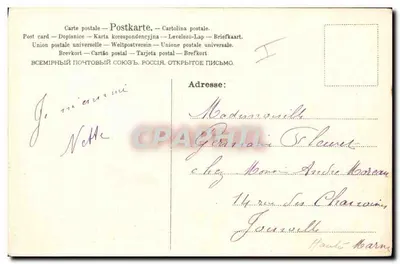 Carte postale – Postkarte. – Cartolina postale.
Post card – Dopisnice – Karta korespondencyjna – Levelező-Lap – Briefkaart.
Union postale universelle – Weltpostverein – Unione postale universale.
Brevkort – Cartão postal – Tarjeta postal – Brefkort
ВСЕМІРНЫЙ ПОЧТОВЫЙ СОЮЗЪ. РОССІЯ. ОТКРЫТОЕ ПИСЬМО.
I
Adresse:
Je m'ennuie
Nette
Mademoiselle
Germaine Fleuret
chez Monsieur André Moreau
14 rue des Chanoines
Joinville
Haute Marne
CPAPHIL